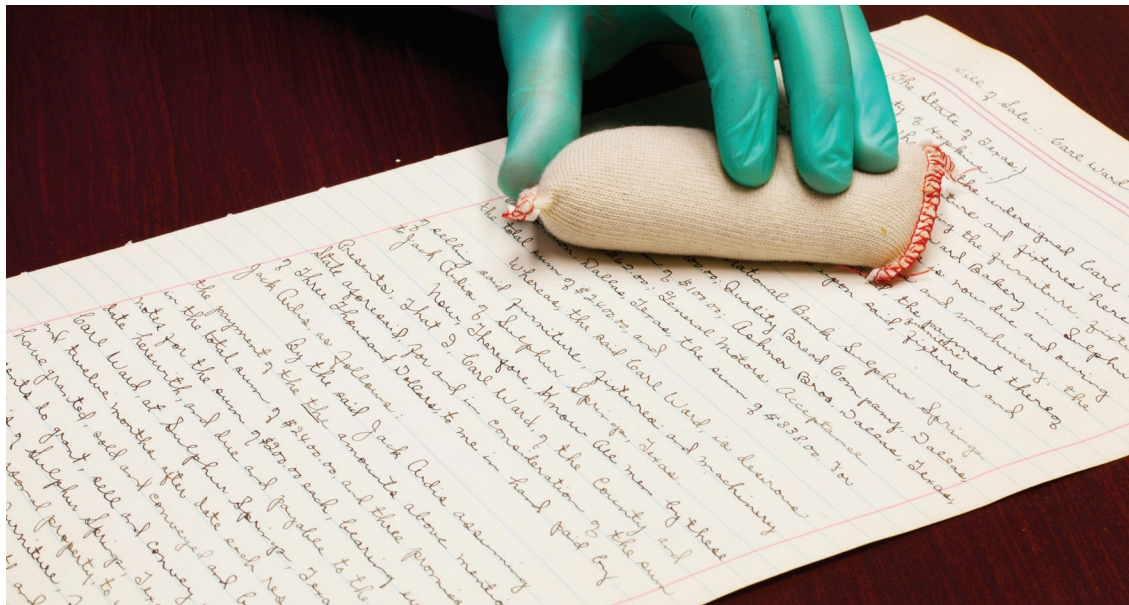 Bill of Sale: Carl Ward
The State of Texas,)
ty of Hopkins )
the undersigned, Carl
and fixtures here
the furniture, fixt
Ward Bakery in Sulphu
is now due and owing
and machinery, the
the payment thereof
upon said fixtures and
National Bank, Sulphur Springs
Quality Bread Company, Texas,
of $100.00, Ashner Bros., Dallas, Texas,
General Motors Acceptance
Dallas, Texas, the sum of $38.00, for
the total sum of $2400.00, and
Whereas, the said Carl Ward, is desirous
of selling said furniture, fixtures and machinery
to Jack Ardis of Sulphur Springs, Texas,
Now, Therefore, Know All men by these
Presents, That I Carl Ward, of the County and
State aforesaid, for and in consideration of the sum
of Three Thousand Dollars, to me in hand paid by
Jack Ardis, as follows:
By the said Jack Ardis assuming
the payment of the the amounts above mentio
in the total sum of $2400.00, and three promiss
notes for the sum of $200.00 each, bearing eve
date herewith, and due and payable to the
Carl Ward, at Sulphur Springs, Texa
and twelve months after date each res
have granted, sold and conveyed and b
ents do grant, sell and convey
of Sulphur Springs, Tex
rsonal property, to
urniture,